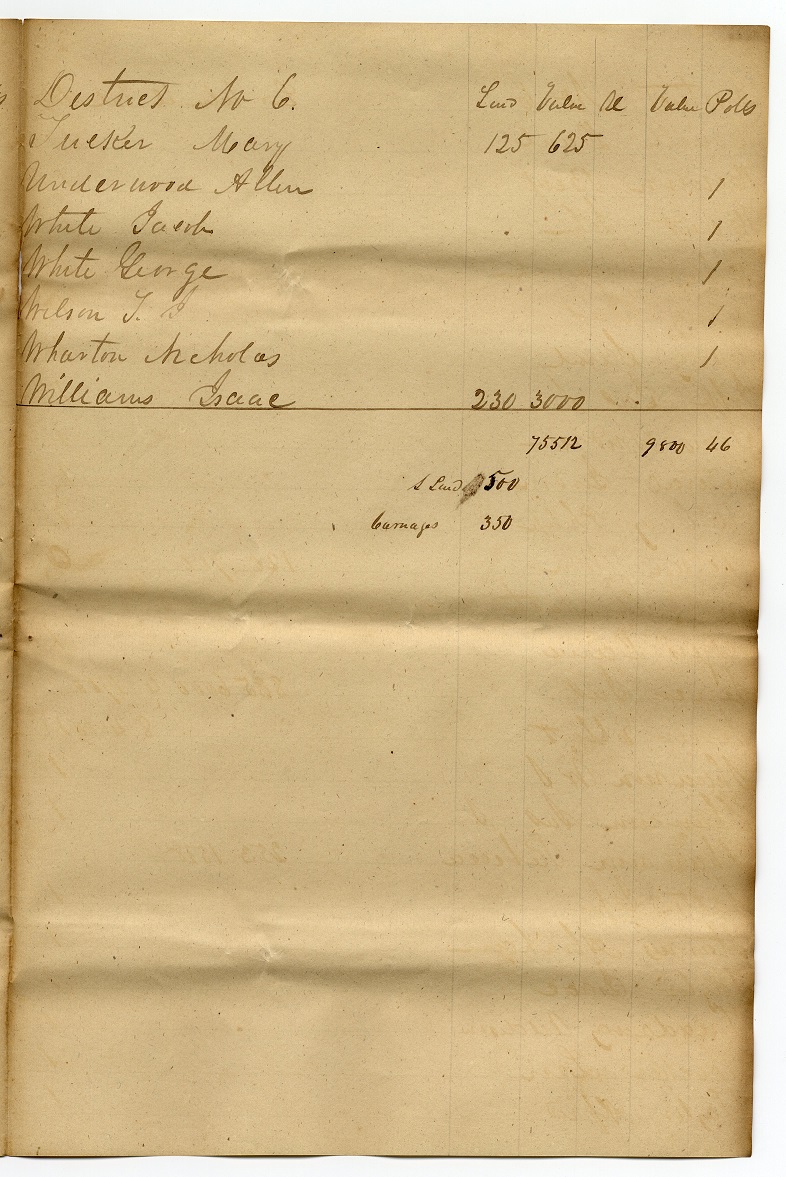 District No 6. Land Value Sl Value Polls
Tucker Mary 125 625
Underwood Allen 1
White Jacob 1
White George 1
Wilson T. J 1
Wharton Nicholas 1
Williams Isaac 230 3000
75512 9800 46
S Land 500
Carriages 350